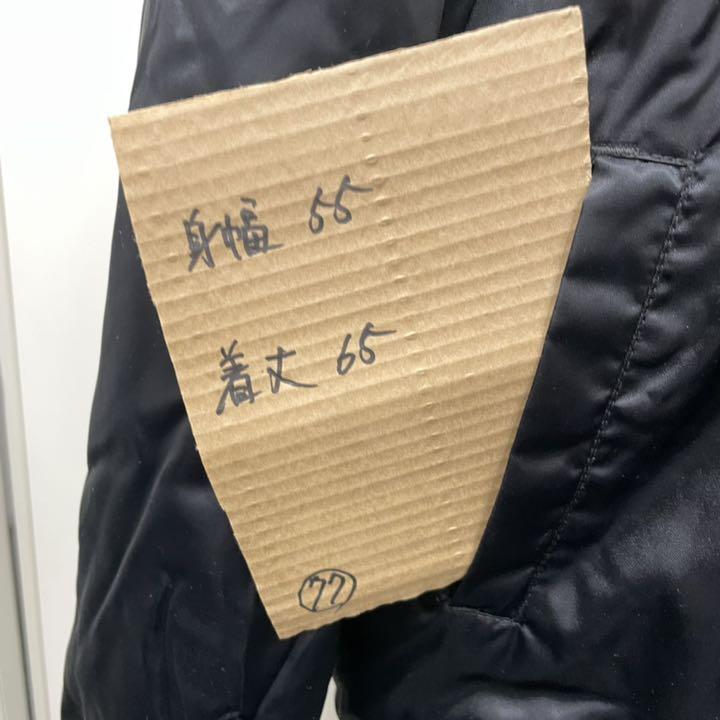 身幅 55
着丈 65
77